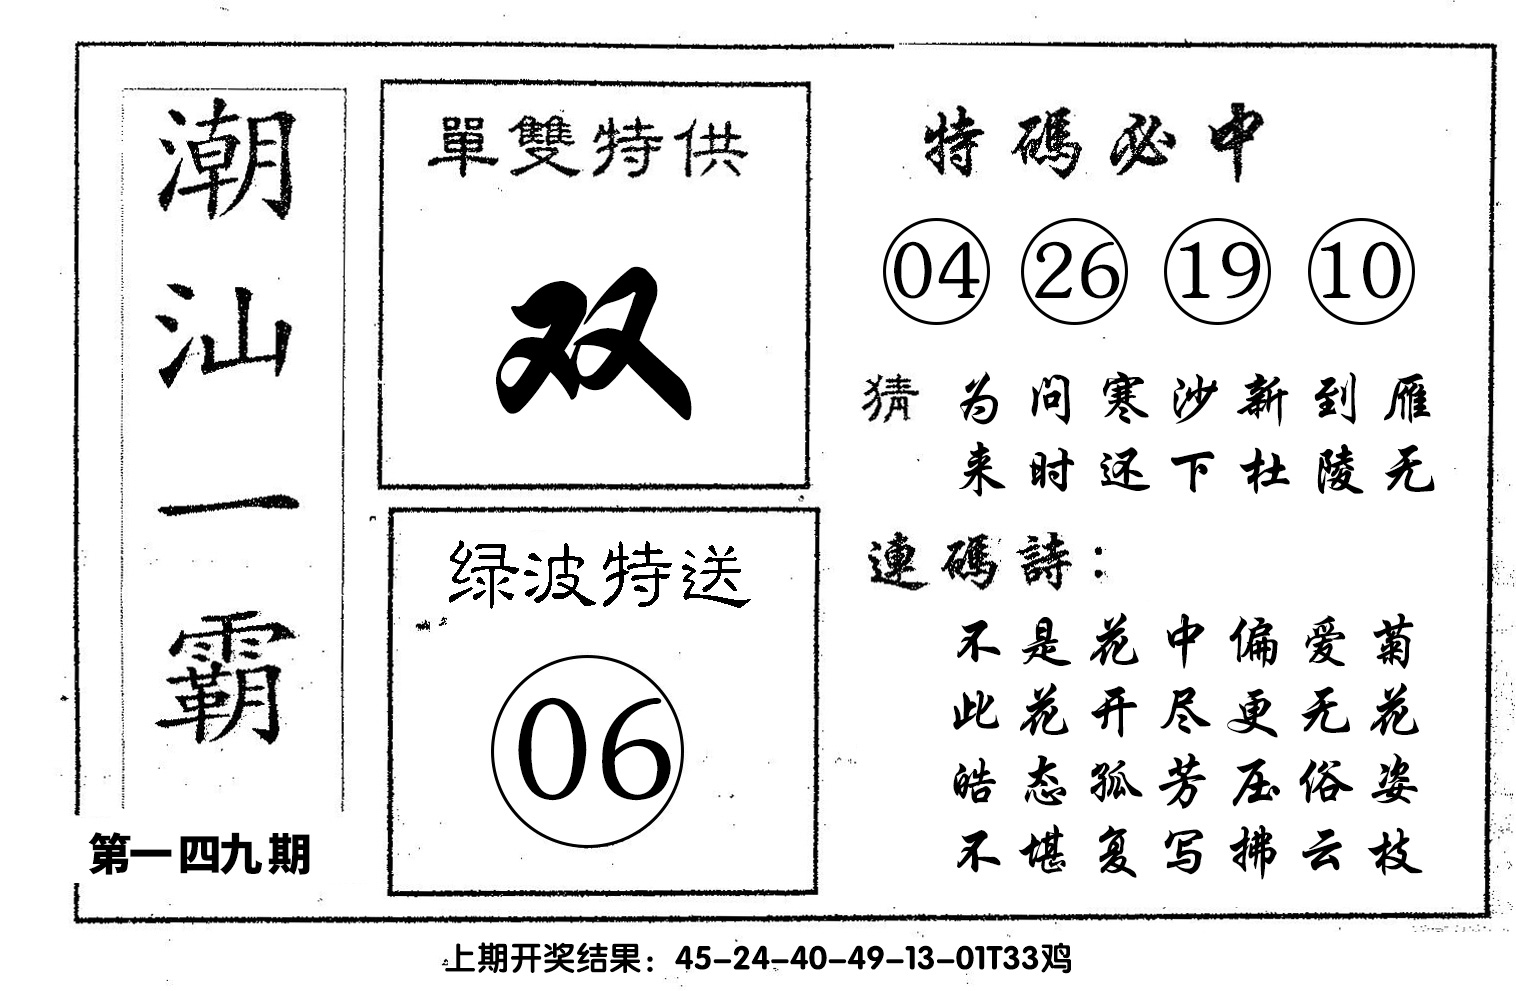 潮汕一霸
第一四九期
單雙特供
双
绿波特送
06
特碼必中
04 26 19 10
猜 为问寒沙新到雁
来时还下杜陵无
連碼詩：
不是花中偏爱菊
此花开尽更无花
皓态孤芳压俗姿
不堪复写拂云枝
上期开奖结果：45-24-40-49-13-01T33鸡